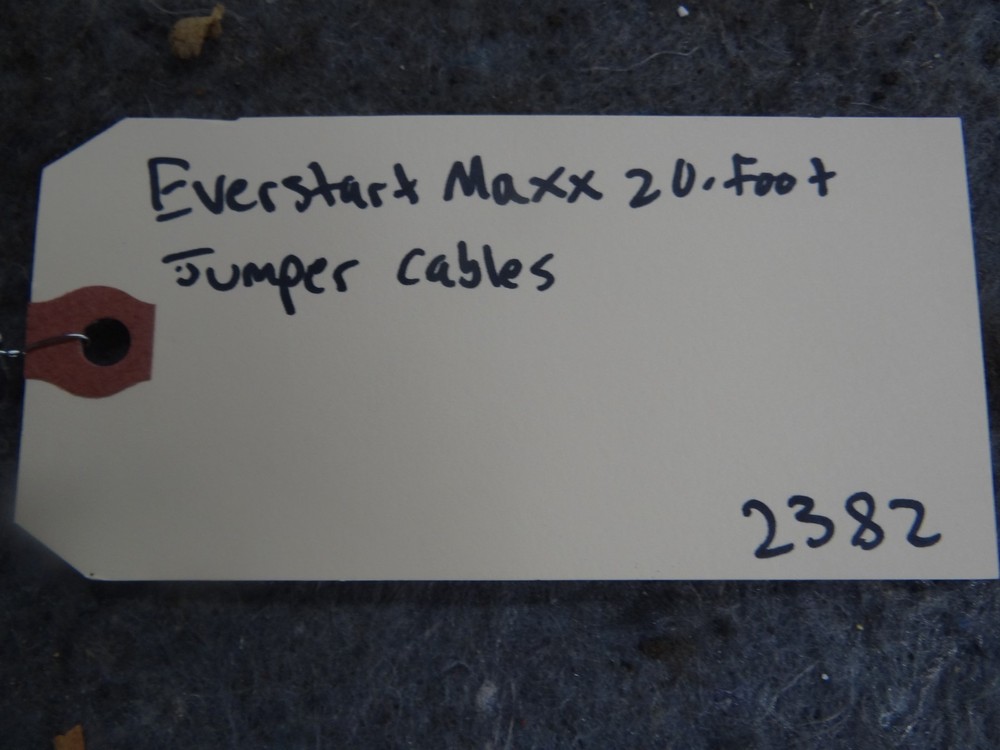 Everstart Maxx 20.Foot
Jumper cables
2382